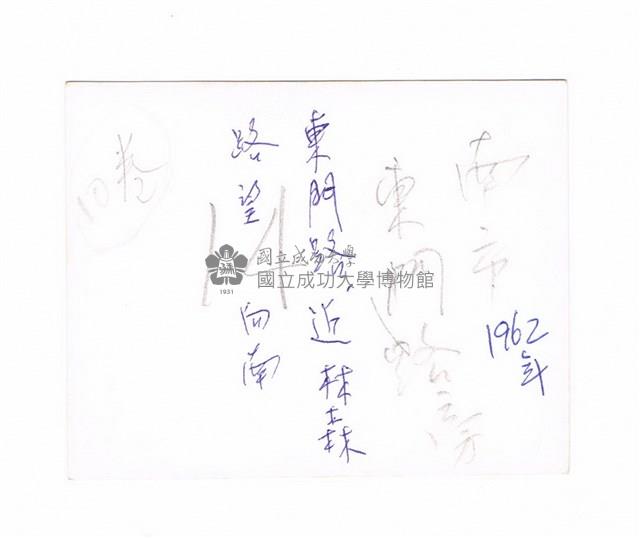 南市
東門路旁
1962
年
東門路近林森
路望向南
14
10卷
國立成功大學
國立成功大學博物館
1931